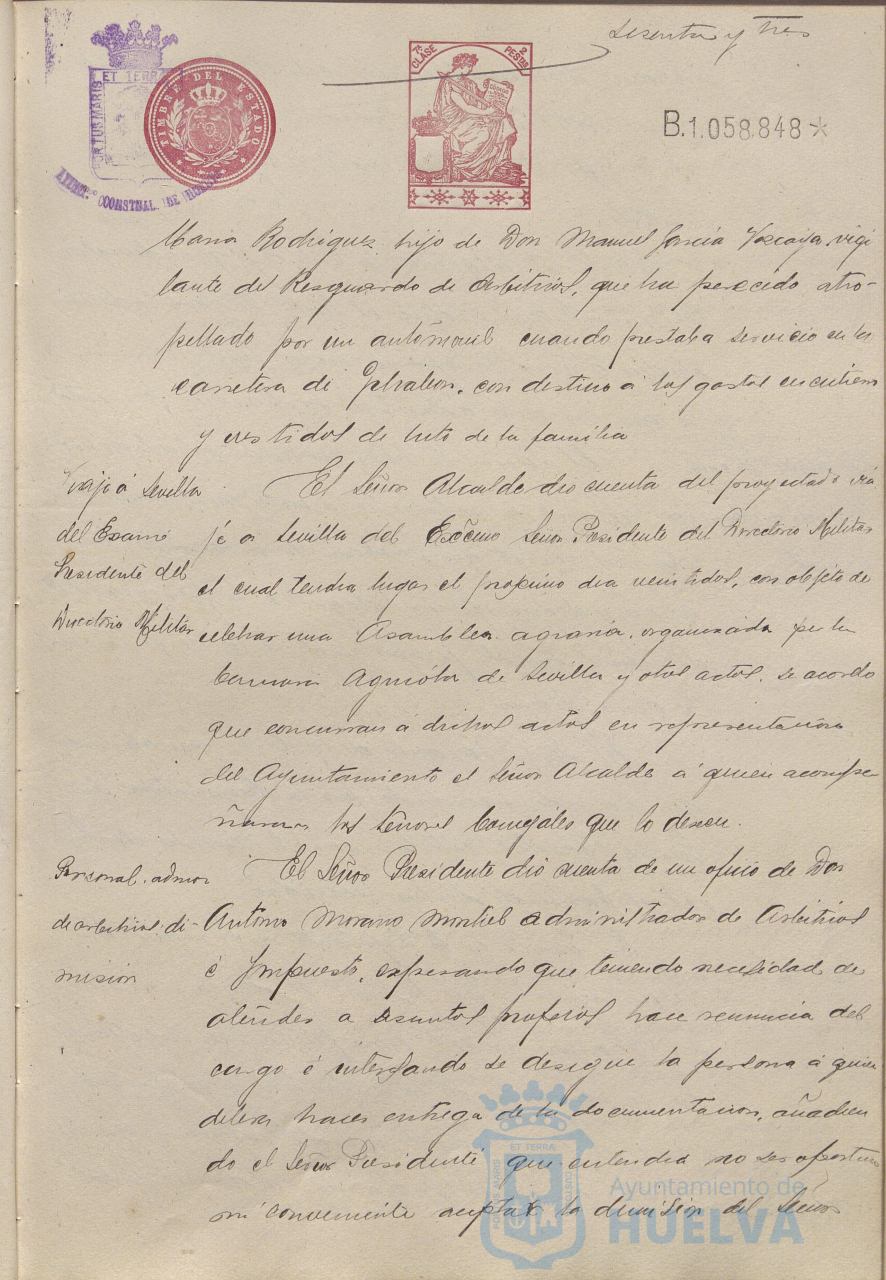 Sesenta y tres
PORTUS MARIS ET TERRÆ
AYUNT.º CONSTNAL. DE HUELVA
TIMBRE DEL ESTADO
7ª CLASE 2 PESTAS
B.1.058.848*
Maria Rodriguez hijo de Don Manuel Garcia Vizcaya, vigi
lante del Resguardo de Arbitrios, que ha perecido atro-
pellado por un automovil cuando prestaba servicio en la
carretera de Gibraleon, con destino á los gastos en entierro
y vestidos de luto de la familia
Viaje á Sevilla
del Excmo
Presidente del
Directorio Militar
El Señor Alcalde dio cuenta del proyectado via
je a Sevilla del Excmo Señor Presidente del Directorio Militar
el cual tendra lugar el proximo dia veintidos, con objeto de
celebrar una Asamblea agraria, organizada por la
Camara Agricola de Sevilla y otros actos, se acordo
que concurran á dichos actos en representacion
del Ayuntamiento el Señor Alcalde á quien acompa
ñaran los Señores Concejales que lo deseen.
Personal, admor
de arbitrios, di-
mision
El Señor Presidente dio cuenta de un oficio de Don
Antonio Morano Montiel administrador de Arbitrios
é Impuesto, expresando que teniendo necesidad de
atender a asuntos propios hace renuncia del
cargo é interesando se designe la persona á quien
debera hacer entrega de la documentacion, añadien
do el Señor Presidente que entendia no ser oportuno
ni conveniente aceptar la dimision del Señor
PORTUS MARIS ET TERRA CUSTODIA
Ayuntamiento de
HUELVA